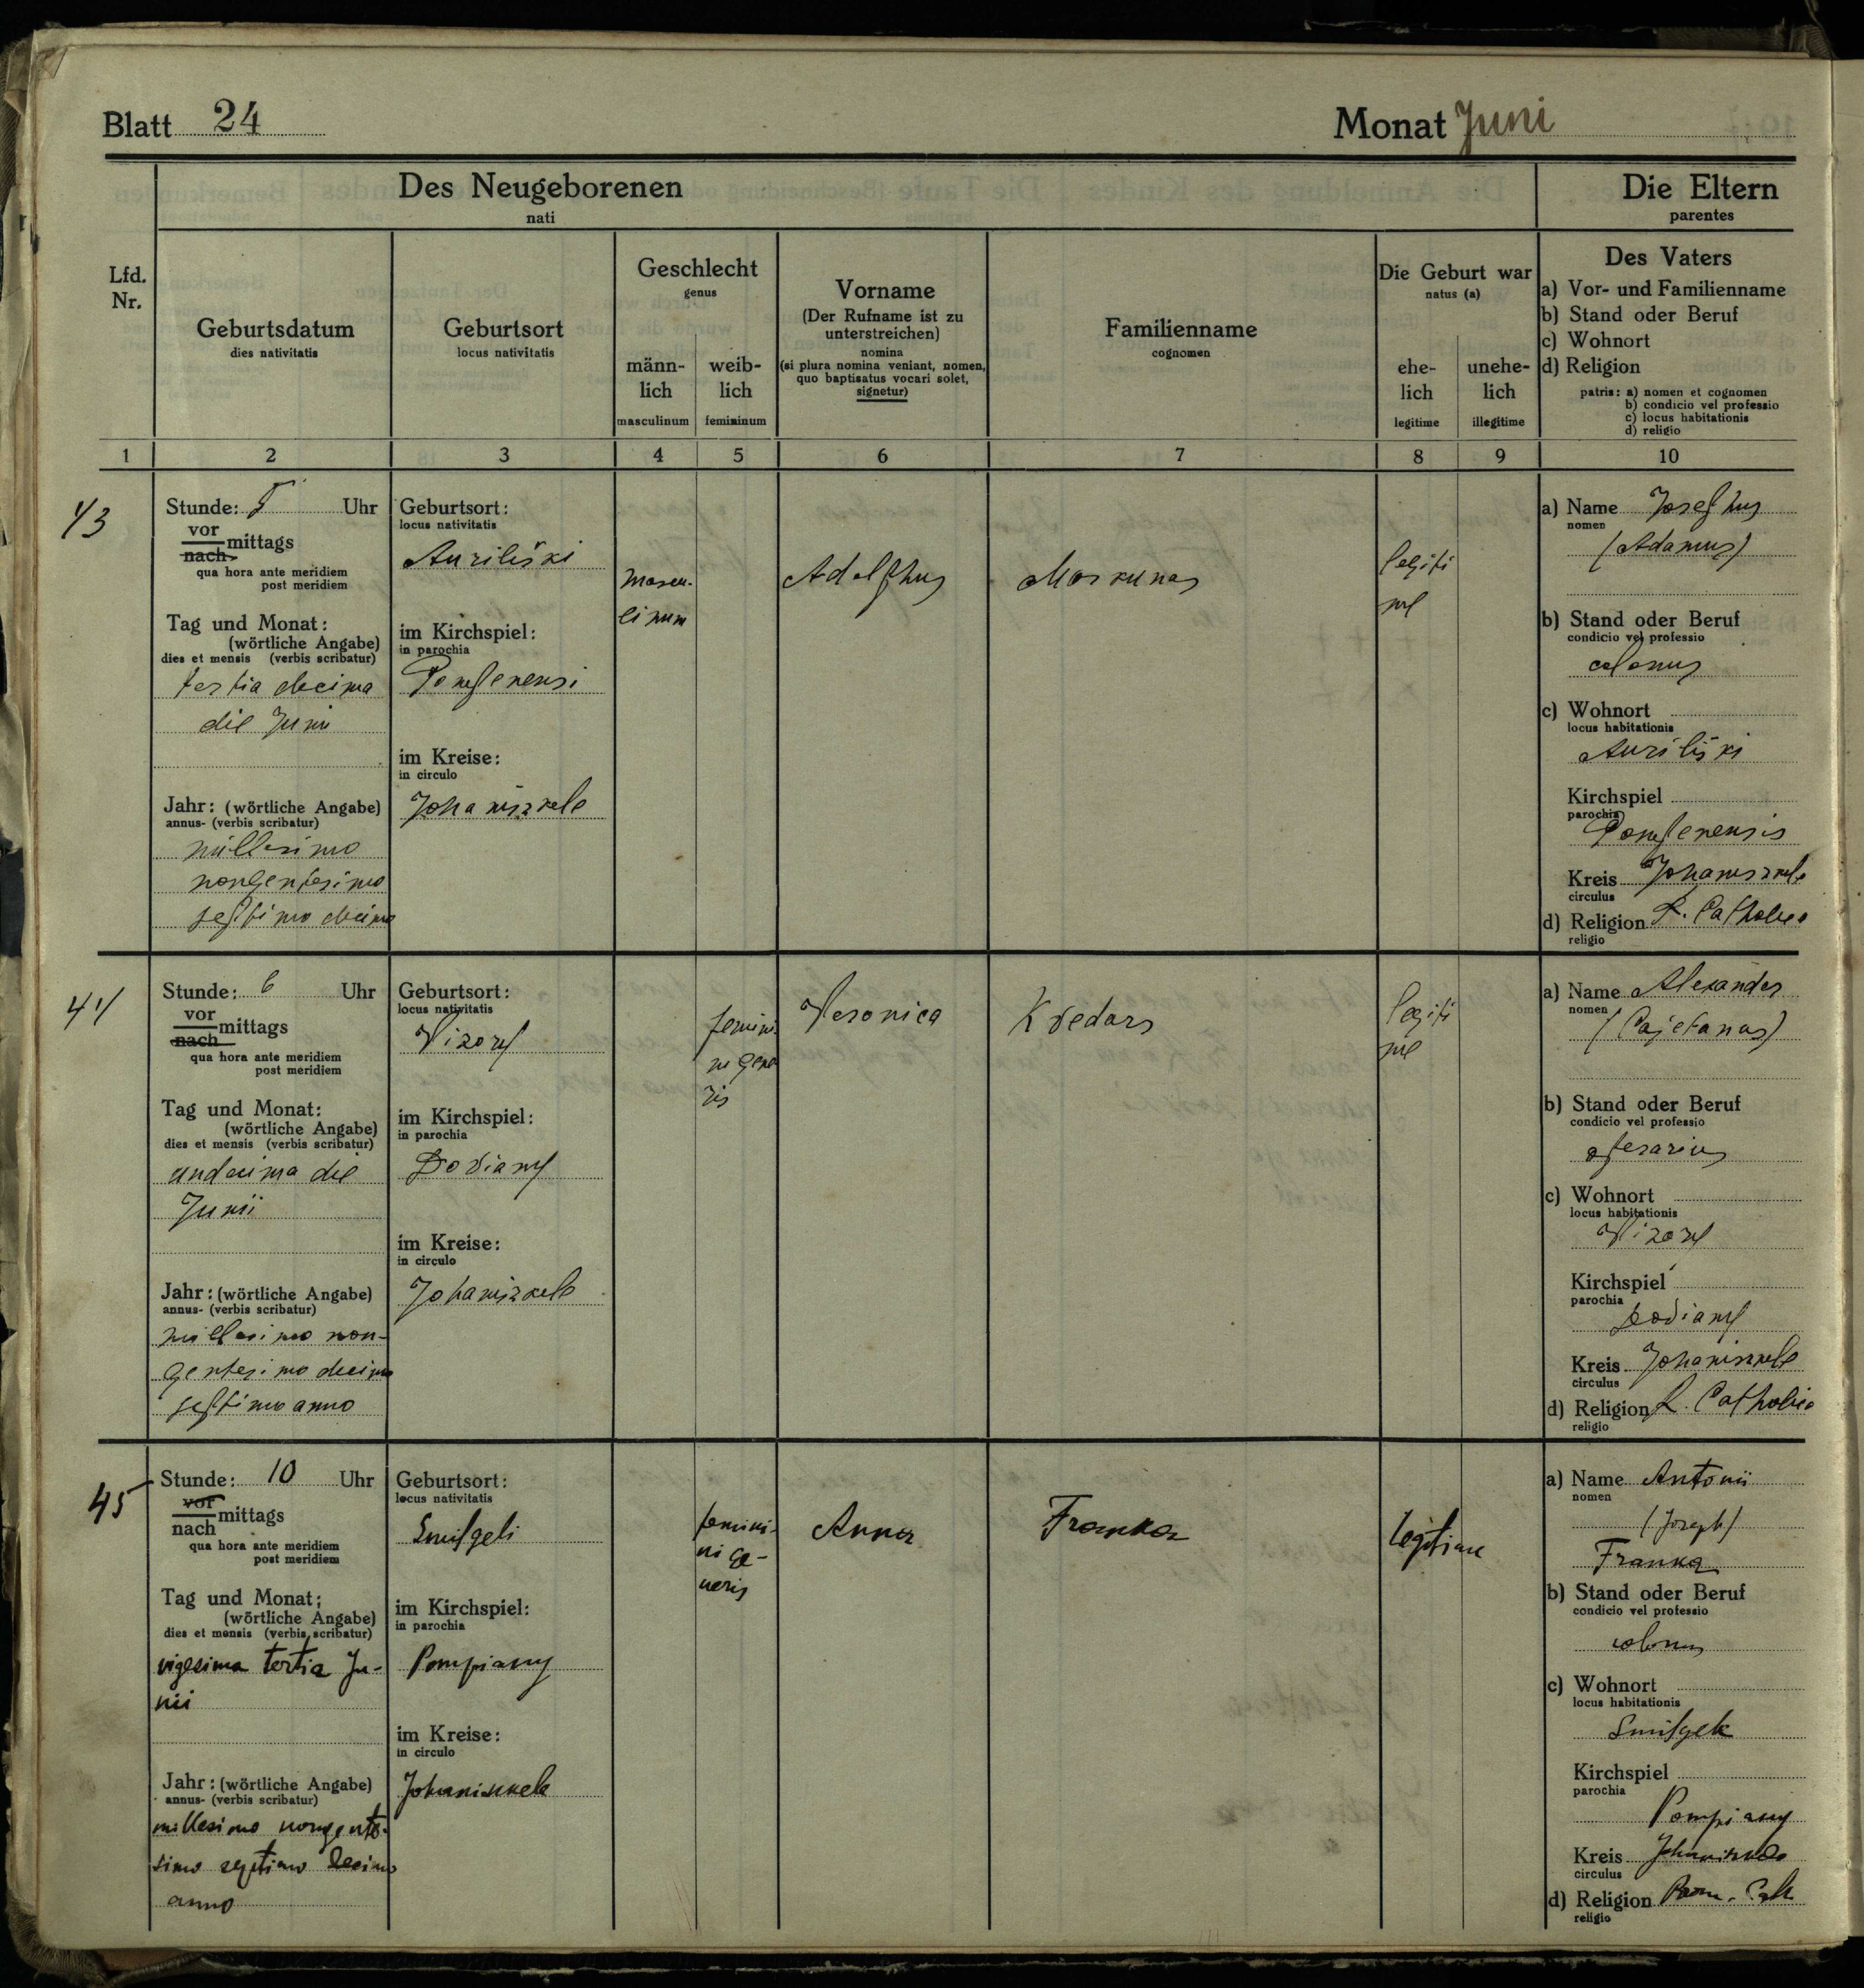 Blatt 24
Monat Juni
Des Neugeborenen
nati
Die Eltern
parentes
Lfd.
Nr.
Geburtsdatum
dies nativitatis
Geburtsort
locus nativitatis
Geschlecht
genus
männ-
lich
masculinum
weib-
lich
femininum
Vorname
(Der Rufname ist zu
unterstreichen)
nomina
(si plura nomina veniant, nomen,
quo baptisatus vocari solet,
signetur)
Familienname
cognomen
Die Geburt war
natus (a)
ehe-
lich
legitime
unehe-
lich
illegitime
Des Vaters
a) Vor- und Familienname
b) Stand oder Beruf
c) Wohnort
d) Religion
patris: a) nomen et cognomen
b) condicio vel professio
c) locus habitationis
d) religio
1 2 3 4 5 6 7 8 9 10
43
Stunde: 5 Uhr
vor
nach mittags
qua hora ante meridiem
post meridiem
Tag und Monat:
(wörtliche Angabe)
dies et mensis (verbis scribatur)
tertia decima
die Juni
Jahr: (wörtliche Angabe)
annus- (verbis scribatur)
millesimo
nongentesimo
septimo decimo
Geburtsort:
locus nativitatis
Auriliški
im Kirchspiel:
in parochia
im Kreise:
in circulo
Johaniszkele
mascu-
linum
Adolphus
Morkunas
legiti
me
a) Name Josephus
nomen
(Adamus)
b) Stand oder Beruf
condicio vel professio
colonus
c) Wohnort
locus habitationis
Auriliški
Kirchspiel
parochia
Kreis Johaniszkele
circulus
d) Religion R. Catholica
religio
44
Stunde: 6 Uhr
vor
nach mittags
qua hora ante meridiem
post meridiem
Tag und Monat:
(wörtliche Angabe)
dies et mensis (verbis scribatur)
undecima die
Junii
Jahr: (wörtliche Angabe)
annus- (verbis scribatur)
millesimo non-
gentesimo decimo
septimo anno
Geburtsort:
locus nativitatis
Vizory
im Kirchspiel:
in parochia
im Kreise:
in circulo
Johaniszkele
femini
ni gene
ris
Veronica
Kvedars
legiti
me
a) Name Alexander
nomen
(Cajetanas)
b) Stand oder Beruf
condicio vel professio
operarius
c) Wohnort
locus habitationis
Vizory
Kirchspiel
parochia
Kreis Johaniszkele
circulus
d) Religion R. Catholica
religio
45
Stunde: 10 Uhr
vor
nach mittags
qua hora ante meridiem
post meridiem
Tag und Monat:
(wörtliche Angabe)
dies et mensis (verbis scribatur)
vigesima tertia Ju-
nii
Jahr: (wörtliche Angabe)
annus- (verbis scribatur)
millesimo nongente-
simo septimo decimo
anno
Geburtsort:
locus nativitatis
Smilgeli
im Kirchspiel:
in parochia
Pompiany
im Kreise:
in circulo
Johaniskele
femini-
ni ge-
neris
Anna
Franka
legitime
a) Name Antonii
nomen
(Joseph)
Franka
b) Stand oder Beruf
condicio vel professio
colonus
c) Wohnort
locus habitationis
Smilgele
Kirchspiel
parochia
Pompiany
Kreis Johaniskele
circulus
d) Religion Rom. Cath
religio